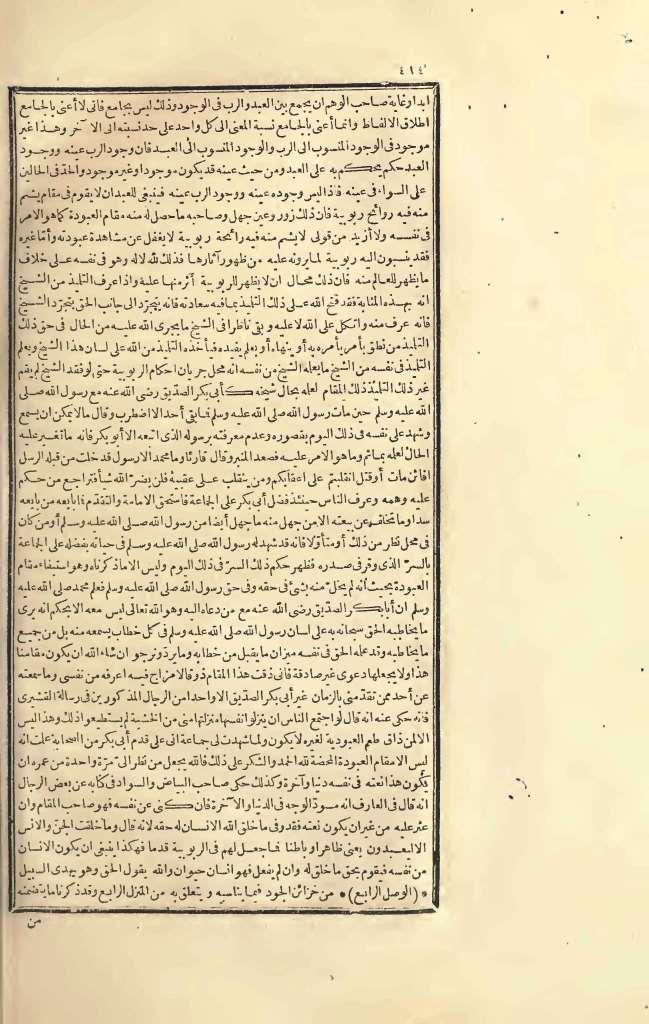 ٤١٤
ابدا وغاية صاحب الوهم ان يجمع بين العبد والرب فى الوجود وذلك ليس بجامع فانى لا أعنى بالجامع
اطلاق الالفاظ وانما أعنى بالجامع نسبة المعنى الى كل واحد على حد نسبته الى الآخر وهذا غير
موجود فى الوجود المنسوب الى الرب والوجود المنسوب الى العبد فان وجود الرب عينه ووجود
العبد حكم يحكم به على العبد ومن حيث عينه قد يكون موجودا وغير موجود والحد فى الحالين
على السواء فى عينه فاذا ليس وجوده عينه ووجود الرب عينه فينبغى للعبد ان لا يقوم فى مقام يشم
منه فيه روائح ربوبية فان ذلك زور وعين جهل وصاحبه ما حصل له منه مقام العبودة كما هو الامر
فى نفسه ولا أزيد من قولى لا يشم منه فيه رائحة ربوبية لا يغفل عن مشاهدة عبودته وأما غيره
فقد ينسبون اليه ربوبية لما يرونه عليه من ظهور آثارها فذلك لله لا له وهو فى نفسه على خلاف
ما يظهر للعالم منه فان ذلك محال ان لا يظهر للربوبية أثر منها عليه واذا عرف التلميذ من الشيخ
انه بهذه المثابة فقد فتح الله على ذلك التلميذ بما فيه سعادته فانه يتجرّد الى جانب الحق تجرّد الشيخ
فانه عرف منه واتكل على الله لا عليه وبقى ناظرا فى الشيخ ما يجرى الله عليه من الحال فى حق ذلك
التلميذ من نطق بأمر يأمره به أو ينهاه أو بعلم يفيده فيأخذه التلميذ من الله على لسان هذا الشيخ ويعلم
التلميذ فى نفسه من الشيخ ما يعلمه الشيخ من نفسه انه محل جريان احكام الربوبية حتى لو فقد الشيخ لم يقم
غير ذلك التلميذ ذلك المقام لعلمه بحال شيخه كأبى بكر الصديق رضى الله عنه مع رسول الله صلى
الله عليه وسلم حين مات رسول الله صلى الله عليه وسلم فما بقى أحد الا اضطرب وقال ما لا يمكن ان يسمع
وشهد على نفسه فى ذلك اليوم بقصوره وعدم معرفته برسوله الذى اتبعه الا أبو بكر فانه ما تغير عليه
الحال لعلمه بما ثم وما هو الامر عليه فصعد المنبر وقال قارئا وما محمد الا رسول قد خلت من قبله الرسل
افائن مات أو قتل انقلبتم على اعقابكم ومن ينقلب على عقبيه فلن يضرّ الله شيأ فتراجع من حكم
عليه وهمه وعرف الناس حينئذ فضل أبى بكر على الجماعة فاستحق الامامة والتقدم فما بايعه من بايعه
سدا وما تخلف عن بيعته الا من جهل منه ما جهل أيضا من رسول الله صلى الله عليه وسلم أو من كان
فى محل نظر من ذلك أو متأوّلا فانه قد شهد له رسول الله صلى الله عليه وسلم فى حياته بفضله على الجماعة
بالسرّ الذى وقر فى صدره فظهر حكم ذلك السرّ فى ذلك اليوم وليس الا ما ذكرناه وهو استيفاء مقام
العبودة بحيث انه لم يخلّ منه بشئ فى حقه وفى حق رسول الله صلى الله عليه وسلم فعلم محمد صلى الله عليه
وسلم ان أبا بكر الصدّيق رضى الله عنه مع من دعاه اليه وهو الله تعالى ليس معه الا بحكم انه يرى
ما يخاطبه الحق سبحانه به على لسان رسول الله صلى الله عليه وسلم فى كل خطاب يسمعه منه بل من جميع
ما يخاطبه وقد علمه الحق فى نفسه ميزان ما يقبل من خطابه وما يردّ ونرجو ان شاء الله ان يكون مقامنا
هذا ولا يجعلها دعوى غير صادقة فانى ذقت هذا المقام ذوقا لا مزاج فيه اعرفه من نفسى وما سمعته
عن أحد ممن تقدّمنى بالزمان غير أبى بكر الصديق الا واحدا من الرجال المذكورين فى رسالة القشيرى
فانه حكى عنه انه قال لو اجتمع الناس ان ينزلوا نفسى منزلتها منى من الخسة لم يستطيعوا ذلك وهذا ليس
الا لمن ذاق طعم العبودية لغيره لا يكون ولما شهدت لى جماعة انى على قدم أبى بكر من الصحابة علمت انه
ليس الا مقام العبودة المحضة لله الحمد والشكر على ذلك فالله يجعل من نظر الىّ مرّة واحدة من عمره ان
يكون هذا نعته فى نفسه دنيا وآخرة وكذلك حكى صاحب البياض والسواد فى كتابه عن بعض الرجال
انه قال فى العارف انه مسودّ الوجه فى الدنيا والآخرة فان كنى عن نفسه فهو صاحب المقام وان
عثر عليه من غير ان يكون نعته فقد وفى ما خلق الله الانسان له حقه لانه قال وما خلقت الجنّ والانس
الا ليعبدون يعنى ظاهرا وباطنا فما جعل لهم فى الربوبية قدما فهكذا ينبغى ان يكون الانسان
من نفسه فيقوم بحق ما خلق له وان لم يفعل فهو انسان حيوان والله يقول الحق وهو يهدى السبيل
* (الوصل الرابع) * من خزائن الجود فيما يناسبه ويتعلق به من المنزل الرابع وقد ذكرنا ما يتضمنه
من